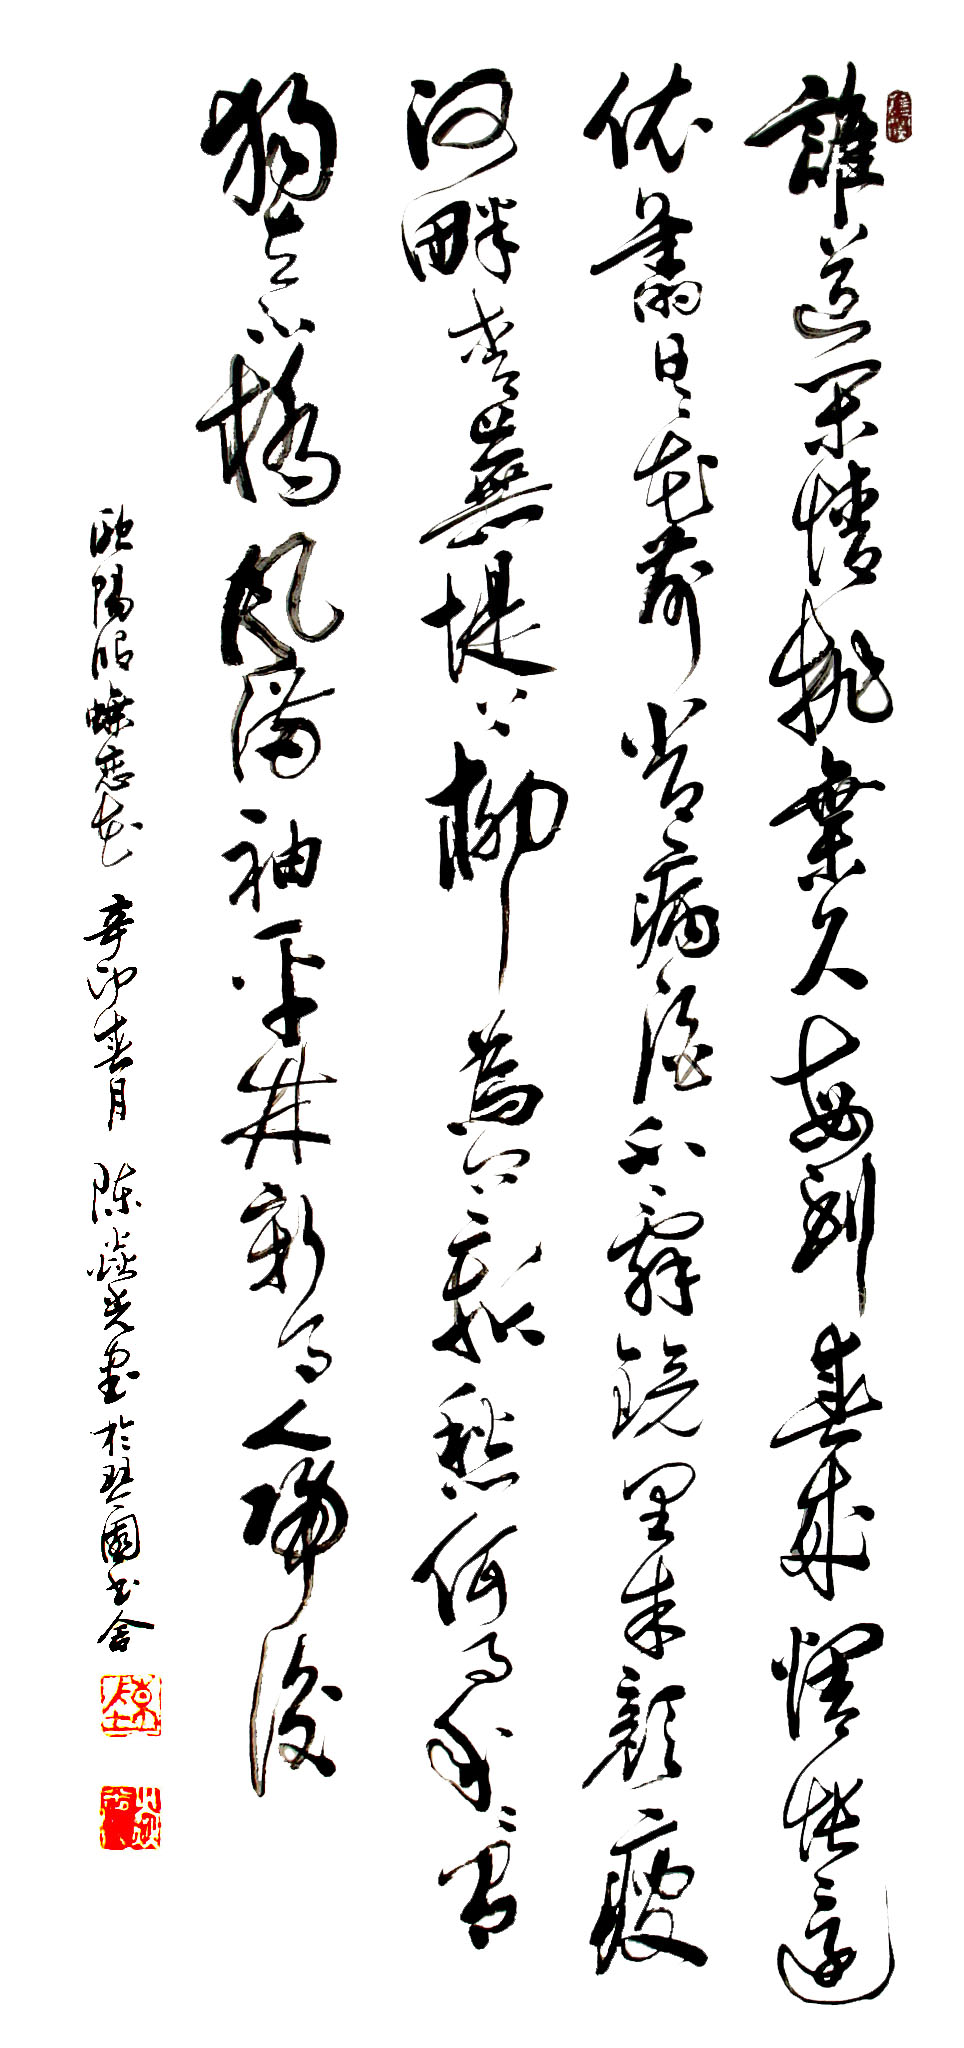 誰道閑情拋棄久每到春來惆悵還
依舊日日花前常病酒不辭鏡里朱顏瘦
河畔青蕪堤上柳為問新愁何事年年有
獨立小橋風滿袖平林新月人歸後
歐陽脩蝶戀花 辛卯春月 陳焱光書於琴園書舍